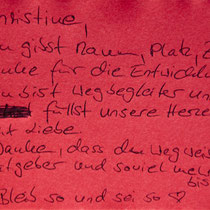 hristine,
u gibst Raum, Platz,
anke für die Entwicklu
u bist Wegbegleiter un
füllst unsere Herze
it Liebe.
anke, dass du Wegweis
itgeber und soviel meh
bis
Bleib so und sei so ♡